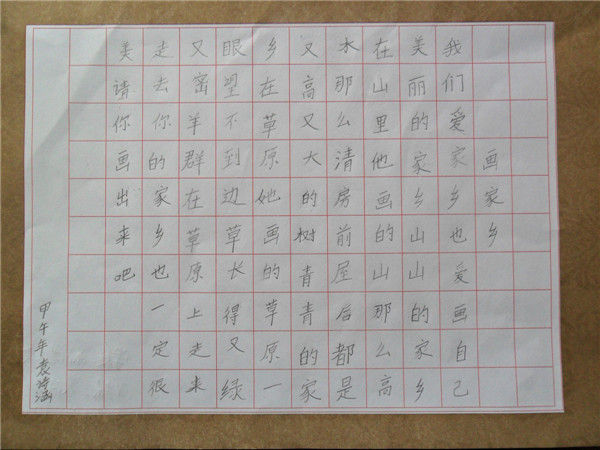 画家乡
我们爱家乡也爱画自己
美丽的家乡山山的家乡
在山里他画的山那么高
水那么清房前屋后都是
又高又大的树青青的家
乡在草原她画的草原一
眼望不到边草长得又绿
又密羊群在草原上走来
走去你的家乡也一定很
美请你画出来吧
甲午年袁诗涵